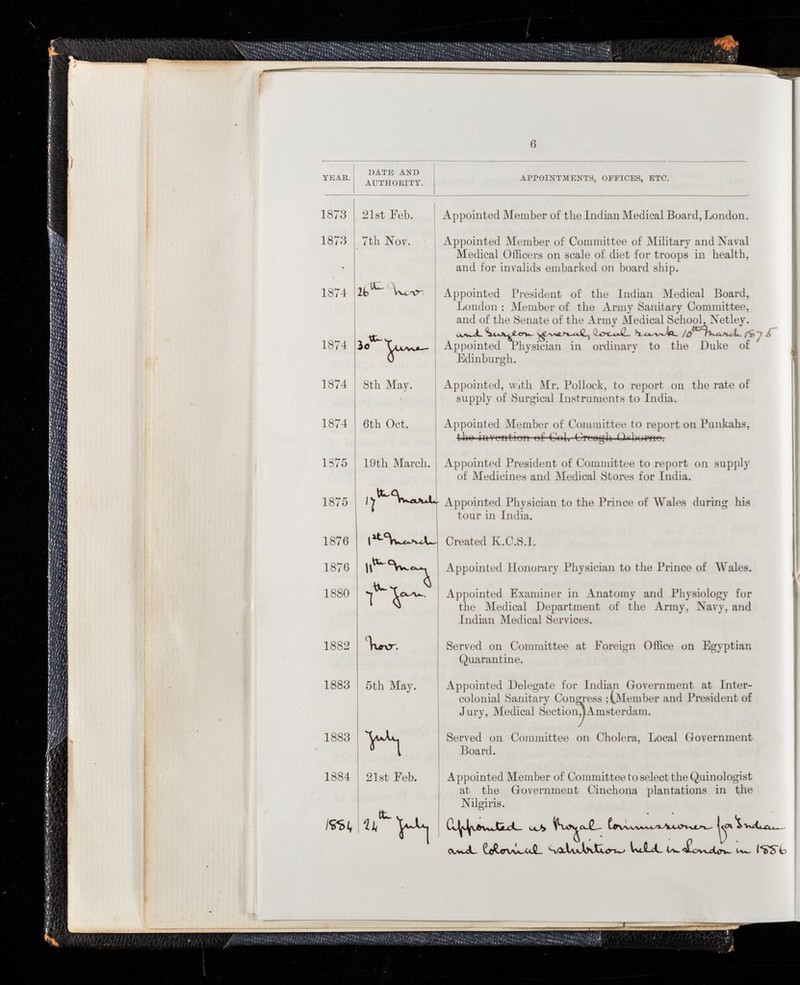 6
YEAR. DATE AND AUTHORITY. APPOINTMENTS, OFFICES, ETC.
1873 21st Feb. Appointed Member of the Indian Medical Board, London.
1873 7th Nov. Appointed Member of Committee of Military and Naval
Medical Officers on scale of diet for troops in health,
and for invalids embarked on board ship.
1874 26th Nov. Appointed President of the Indian Medical Board,
London ; Member of the Army Sanitary Committee,
and of the Senate of the Army Medical School, Netley.
and Surgeon General, local rank 10th March 1875
1874 30th June Appointed Physician in ordinary to the Duke of
Edinburgh.
1874 8th May. Appointed, with Mr. Pollock, to report on the rate of
supply of Surgical Instruments to India.
1874 6th Oct. Appointed Member of Committee to report on Punkahs,
the invention of Col. Creagh Osborne.
1875 19th March. Appointed President of Committee to report on supply
of Medicines and Medical Stores for India.
1875 17th March Appointed Physician to the Prince of Wales during his
tour in India.
1876 1st March Created K.C.S.I.
1876 11th May Appointed Honorary Physician to the Prince of Wales.
1880 7th Jan. Appointed Examiner in Anatomy and Physiology for
the Medical Department of the Army, Navy, and
Indian Medical Services.
1882 Nov. Served on Committee at Foreign Office on Egyptian
Quarantine.
1883 5th May. Appointed Delegate for Indian Government at Inter-
colonial Sanitary Congress ; (Member and President of
Jury, Medical Section,) Amsterdam.
1883 July Served on Committee on Cholera, Local Government
Board.
1884 21st Feb. Appointed Member of Committee to select the Quinologist
at the Government Cinchona plantations in the
Nilgiris.
1884 24th July Appointed as Royal Commissioner for Indian
and Colonial exhibition held in London in 1886